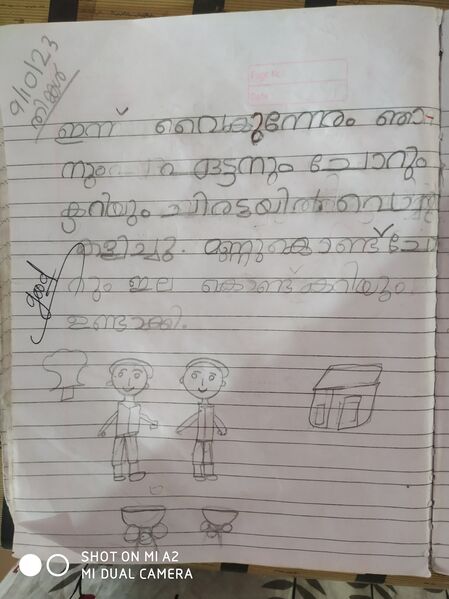 9/10/23
തിങ്കൾ
Page No.
Date
ഇന്ന് വൈകുന്നേരം ഞാ-
നും ഏട്ടനും ചോറും
കറിയും ചിരട്ടയിൽ
കളിച്ചു. മണ്ണുകൊണ്ട് ചോ
റും ഇല കൊണ്ട് കറിയും
ഉണ്ടാക്കി.
good
SHOT ON MI A2
MI DUAL CAMERA